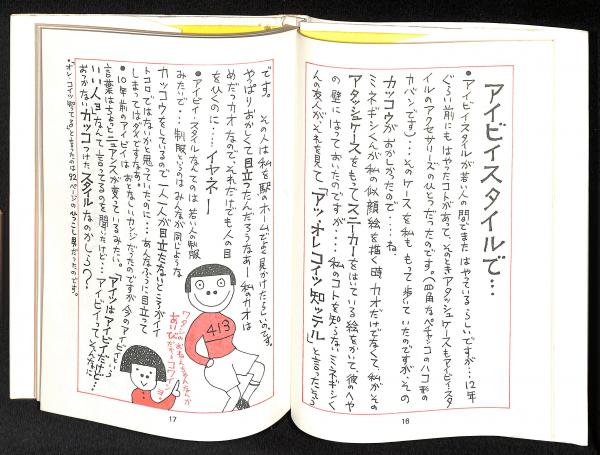 アイビイスタイルで…
●アイビイスタイルが若い人の間でまたはやっているらしいですが…12年
ぐらい前にもはやったコトがあって、そのときアタッシュケースもアイビイスタ
イルのアクセサリーズのひとつだったのです。(四角なペチャンコのハコ形の
カバンです)…そのケースを私ももって歩いていたのですが、その
カッコウがおかしかったので……ね、
ミネギシくんが私の似顔絵を描く時カオだけでなくて、私がその
アタッシュケースをもってスニーカーをはいている絵をかいて、彼のへや
の壁にはっておいたのですが……私のコトを知らないミネギシくん
の友人が、それを見て、「アッ、オレコイツ知ッテル」と言ったそう
16
です。その人は私を駅のホームでよく見かけたらしいのです。
やっぱりおかしくて目立ったんだろうなあー私のカオは
めだつカオなので、それだけでも人の目
をひくのに……イヤネー
●アイビイスタイルなんてのは若い人の制服
みたいで…制服というのはみんなが同じような
カッコウをしているので一人一人が目立たないところがイイ
トコロではないかと思っていたのに…あんなふうに目立って
しまってはダメですなあ。
●10年前のアイビイはおとなしいカンジだったのですが今のアイビイという
言葉はちょっとニュアンスが変っているみたい。「アイツはアイビイだけど…
いい人ヨ」なんて言ってるのを聞いたけど…アイビイって、そんなに
おっかないカッコつけたスタイルなのかしら??
●「オレコイツ知ってる」と言ったのは92ページのひっこし男だったのです。
413
ワタシの
あいびい
コワイ
ヨ
17